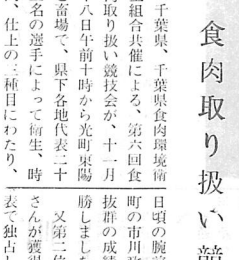 食肉取り扱い競
千葉県、千葉県食肉環境衛
組合共催による、第六回食
肉取り扱い競技会が、十一月
八日午前十時から光町東陽
畜場で、県下各地代表二十
名の選手によって衛生、時
、仕上の三種目にわたり、
日頃の腕前
町の市川
抜群の成績
勝しました
又第二位
さんが獲得
表で独占し